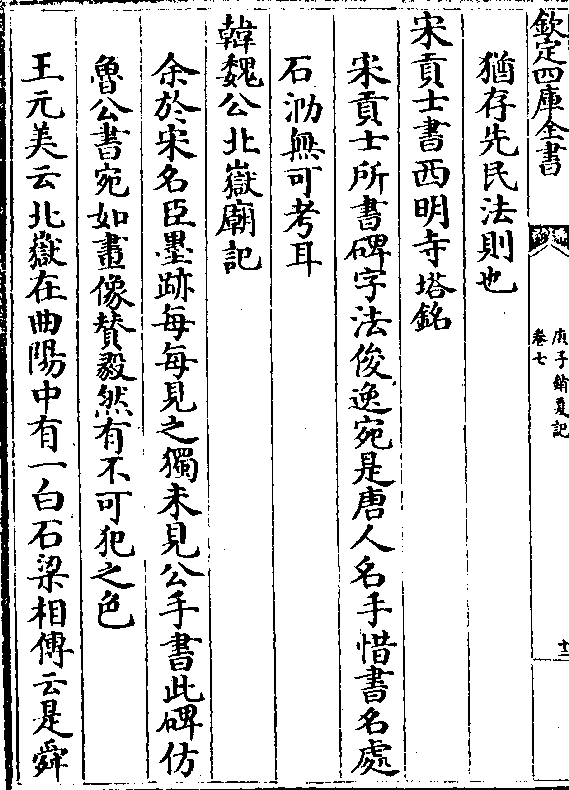 欽定四庫全書
庚子銷夏記
卷七
十二
猶存先民法則也
宋貢士書西明寺塔銘
宋貢士所書碑字法俊逸宛是唐人名手惜書名處
石泐無可考耳
韓魏公北嶽廟記
余於宋名臣墨跡每每見之獨未見公手書此碑仿
魯公書宛如畫像贊毅然有不可犯之色
王元美云北嶽在曲陽中有一白石梁相傳云是舜